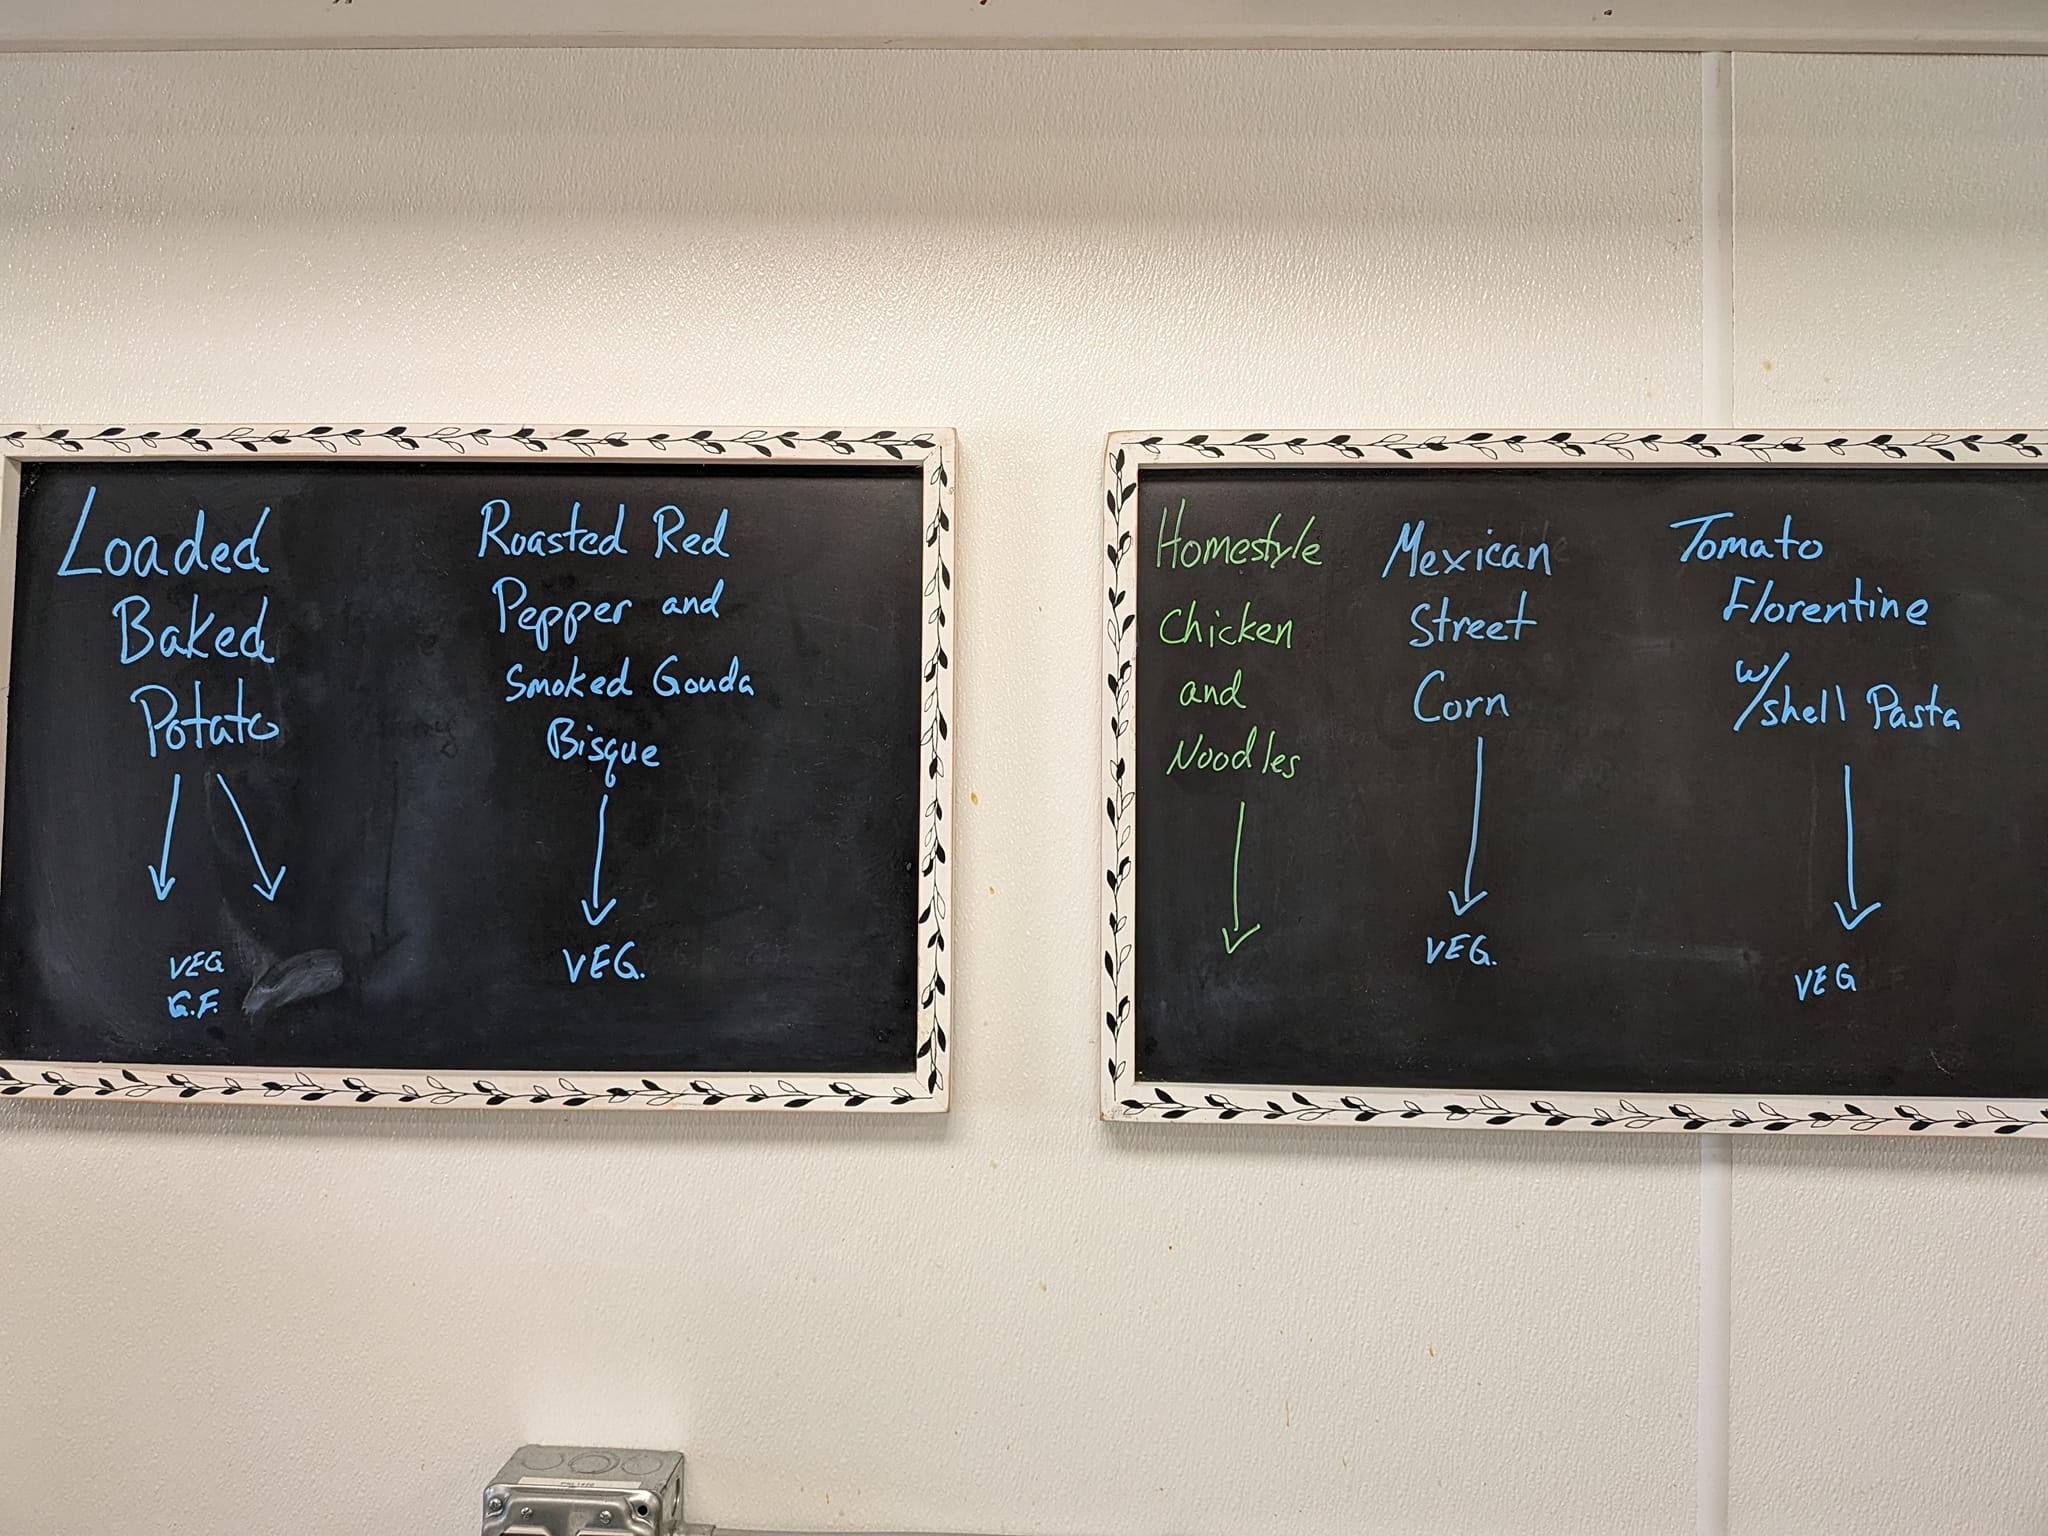 Loaded
Baked
Potato
VEG
G.F.
Roasted Red
Pepper and
Smoked Gouda
Bisque
VEG.
Homestyle
Chicken
and
Noodles
Mexican
Street
Corn
VEG.
Tomato
Florentine
w/shell Pasta
VEG